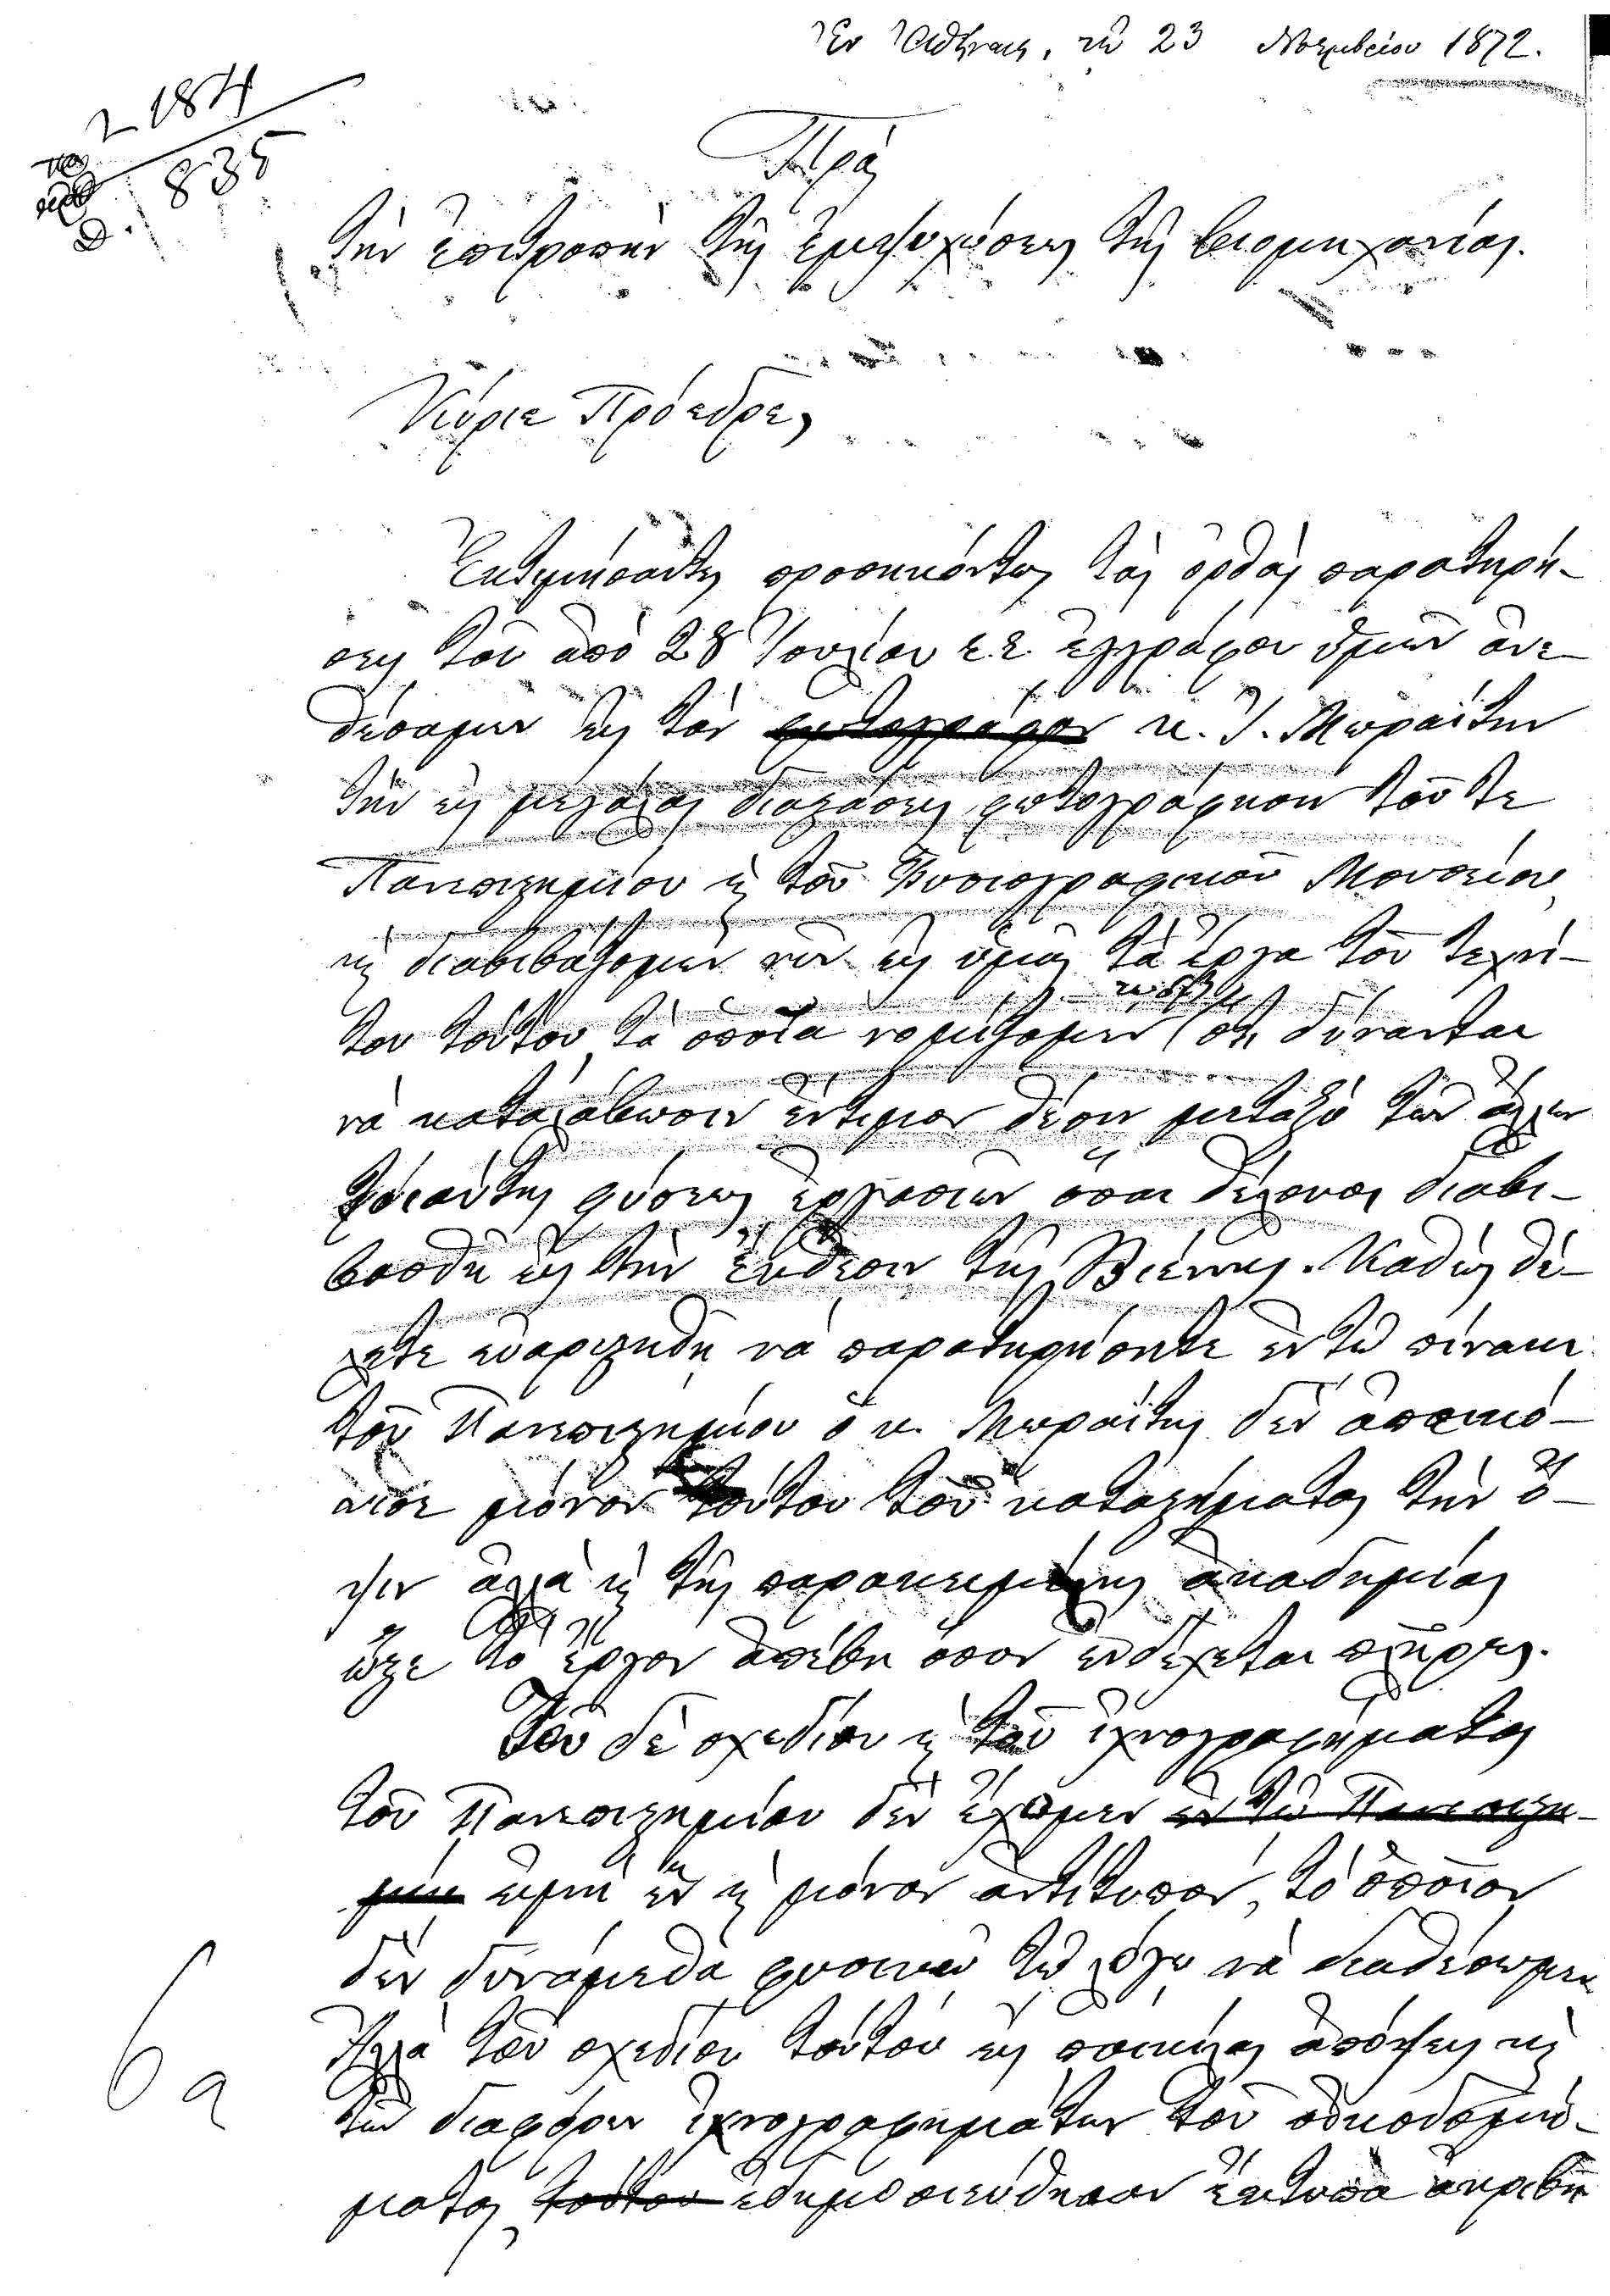 Ἐν Ἀθήναις, τῇ 23 Νοεμβρίου 1872.
2184
835
Πρὸς
τὴν ἐπιτροπὴν τῆς ἐμψυχώσεως τῆς βιομηχανίας.
Κύριε Πρόεδρε,
Ἐκτιμήσαντες προσηκόντως τὰς ὀρθὰς παρατηρή-
σεις τοῦ ἀπὸ 28 Ἰουλίου ἐ.ἐ. ἐγγράφου ὑμῶν ἀνε-
θέσαμεν εἰς τὸν φωτογράφον κ. Ἰ. Μωραΐτην
τὴν εἰς μεγάλας διαστάσεις φωτογράφησιν τοῦ τε
Πανεπιστημίου καὶ τοῦ Φυσιογραφικοῦ Μουσείου,
καὶ διαβιβάζομεν νῦν εἰς ὑμᾶς τὰ ἔργα τοῦ τεχνί-
του τούτου, τὰ ὁποῖα νομίζομεν ὅτι δύνανται
νὰ καταλάβωσιν ἔντιμον θέσιν μεταξὺ τῶν ἄλλων
τοιαύτης φύσεως ἐργασιῶν ὅσαι θέλουσι διαβι-
βασθῆ εἰς τὴν ἔκθεσιν τῆς Βιέννης. Καθὼς θέ-
λετε εὐαρεστηθῆ νὰ παρατηρήσητε ἐν τῷ πίνακι
τοῦ Πανεπιστημίου ὁ κ. Μωραΐτης δὲν ἀπεικό-
νισε μόνον τούτου τοῦ καταστήματος τὴν ὄ-
ψιν ἀλλὰ καὶ τῆς παρακειμένης ἀκαδημίας
ὥστε τὸ ἔργον ἀπέβη ὅσον ἐνδέχεται πλῆρες.
Τοῦ δὲ σχεδίου καὶ τοῦ ἰχνογραφήματος
τοῦ Πανεπιστημίου δὲν ἔχομεν ἐν τῷ Πανεπιστη-
μίῳ εἰμὴ ἓν καὶ μόνον ἀντίτυπον, τὸ ὁποῖον
δὲν δυνάμεθα φυσικῷ τῷ λόγῳ νὰ διαθέσωμεν
Ἀλλὰ τοῦ σχεδίου τούτου εἰς ποικίλας ἀπόψεις καὶ
τῶν διαφόρων ἰχνογραφημάτων τοῦ οἰκοδομή-
ματος τούτου ἐδημοσιεύθησαν ἔκτυπα ἀκριβῆ
6a